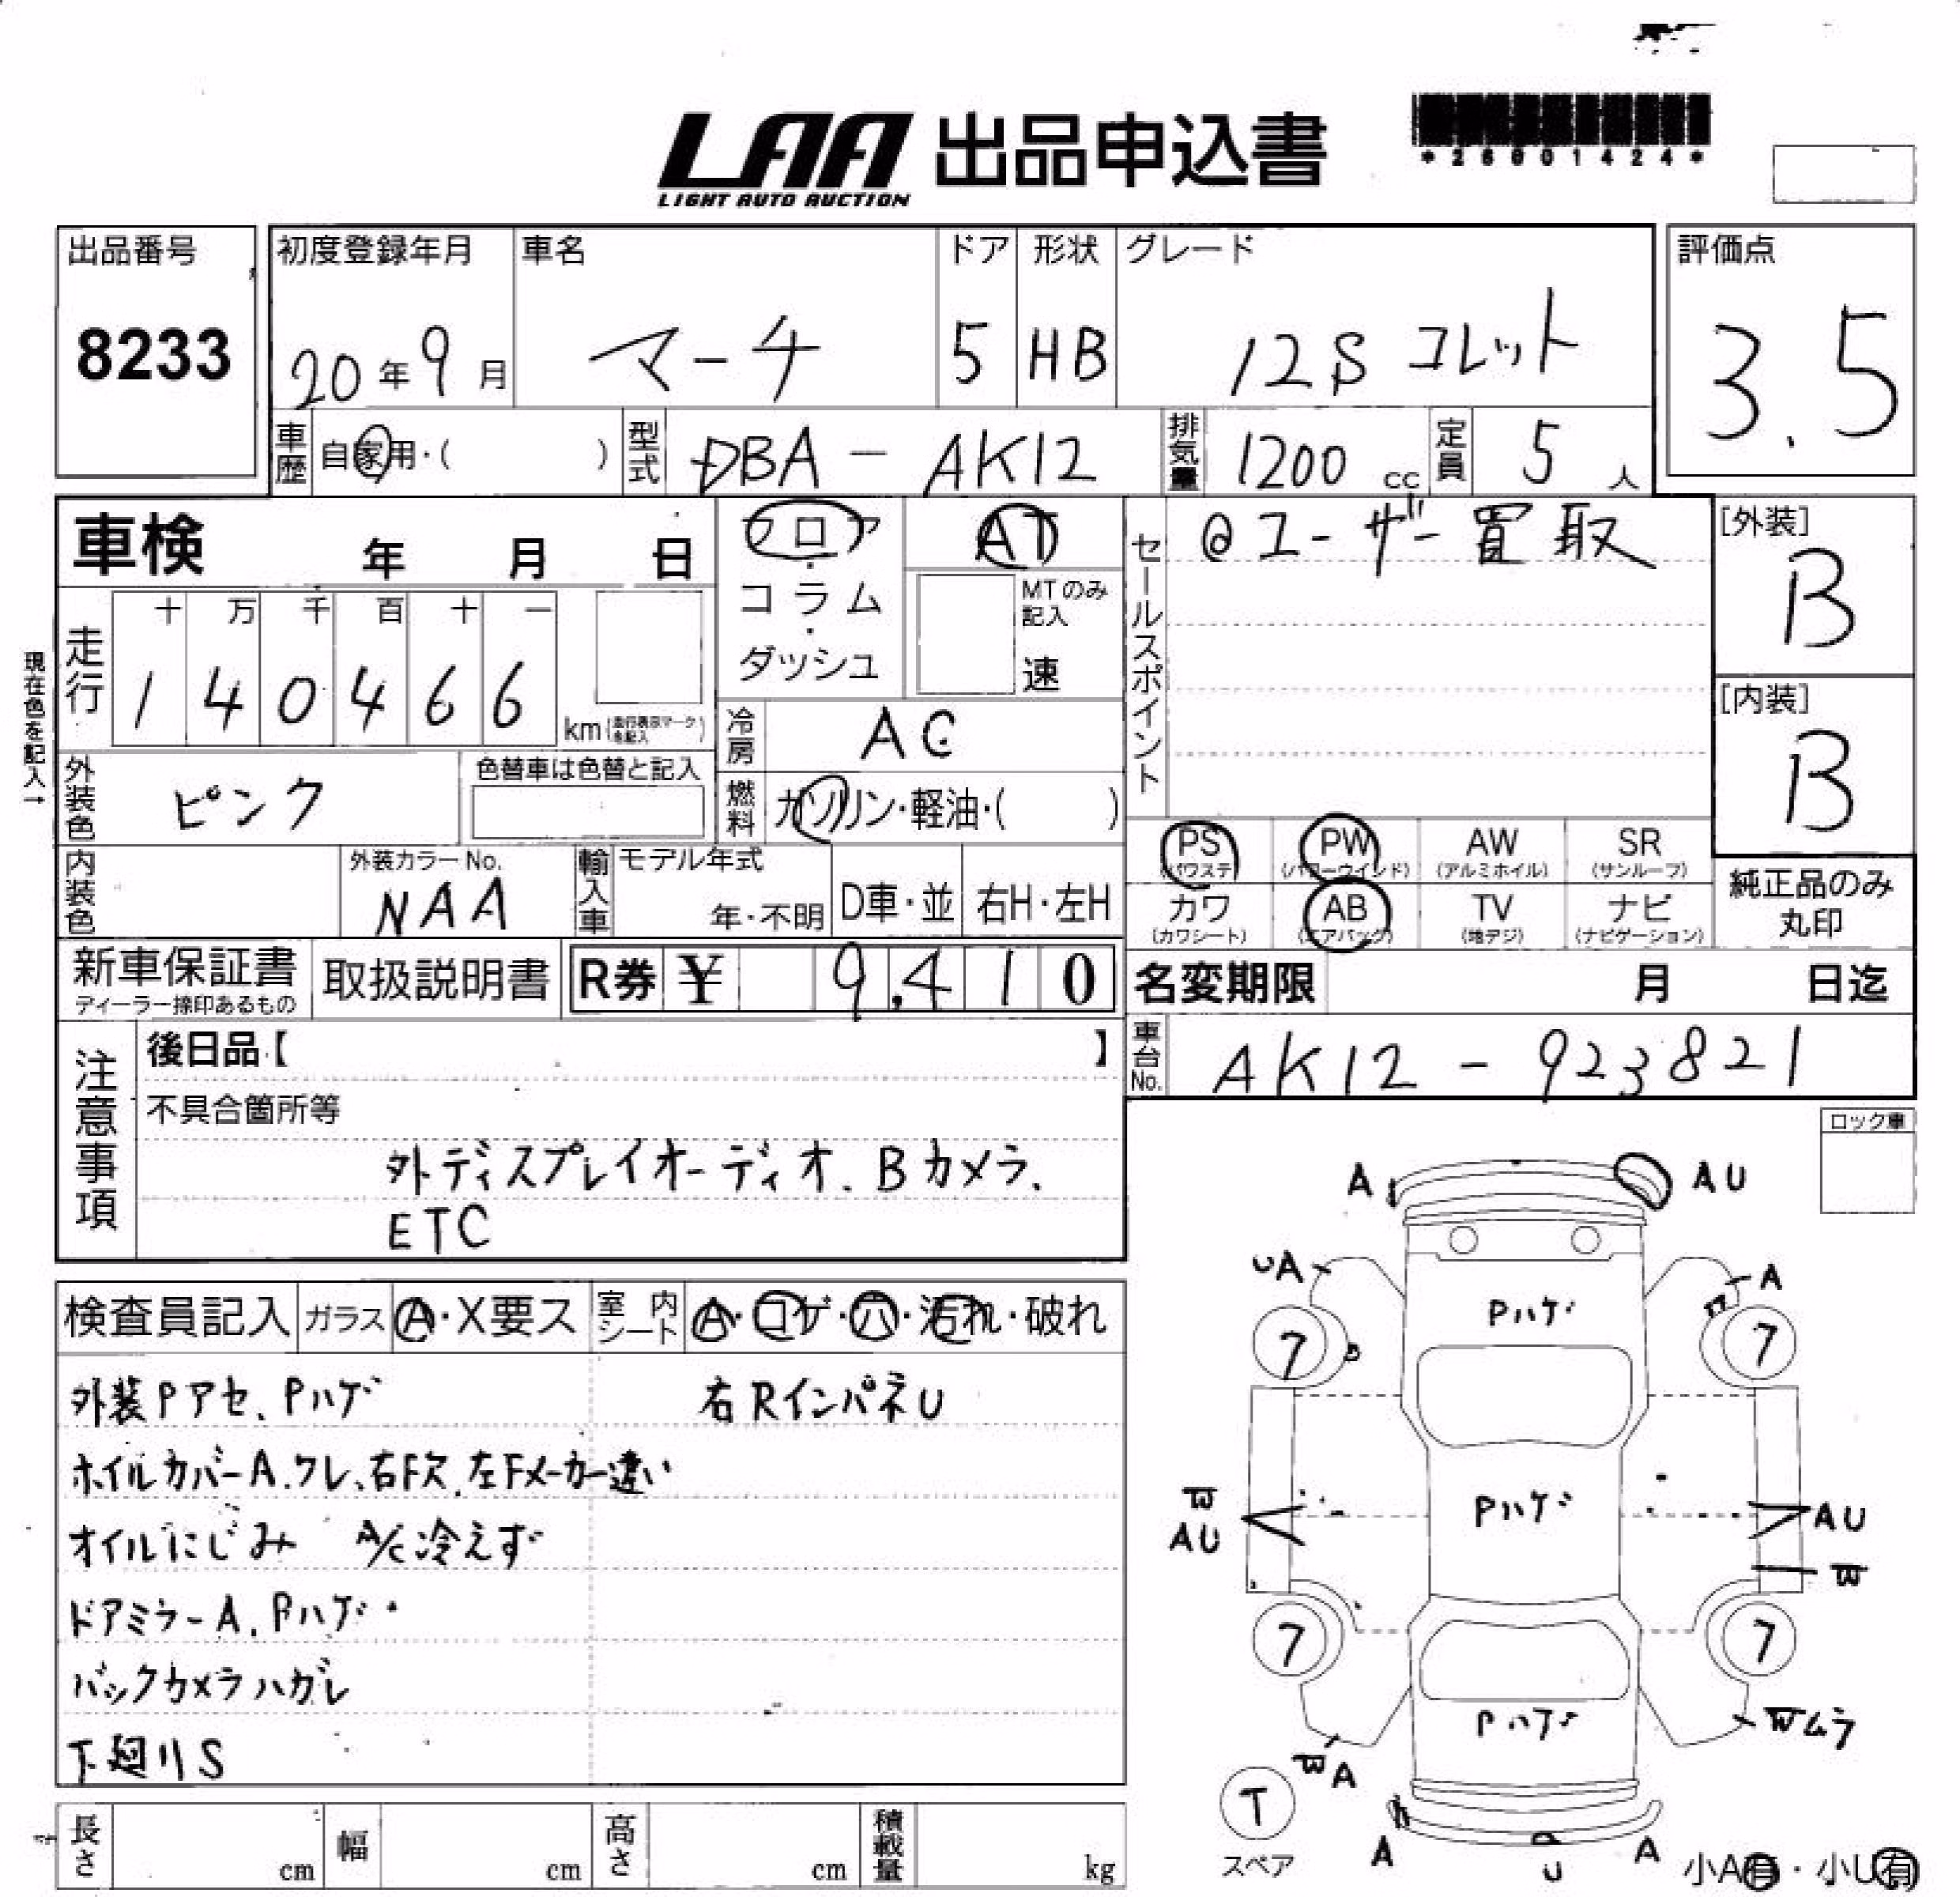 LAA 出品申込書
LIGHT AUTO AUCTION
*26001424*
出品番号
8233
初度登録年月
20年9月
車名
マーチ
ドア
5
形状
HB
グレード
12S コレット
評価点
3.5
車歴 自家用・( )
型式 DBA - AK12
排気量 1200 cc
定員 5 人
車検 年 月 日
フロア・コラム・ダッシュ
AT
MTのみ記入
速
セールスポイント
@ユーザー買取
[外装]
B
[内装]
B
現在色を記入→
走行
十 万 千 百 十 一
1 4 0 4 6 6
km (走行表示マークを記入)
冷房 AC
燃料 ガソリン・軽油・( )
外装色 ピンク
色替車は色替と記入
内装色
外装カラーNo.
NAA
輸入車 モデル年式
年・不明
D車・並
右H・左H
PS (パワステ)
PW (パワーウインド)
AW (アルミホイル)
SR (サンルーフ)
カワ (カワシート)
AB (エアバック)
TV (地デジ)
ナビ (ナビゲーション)
純正品のみ丸印
新車保証書
ディーラー捺印あるもの
取扱説明書
R券 ¥ 9,410
名変期限 月 日迄
車台No. AK12 - 923821
注意事項
後日品【 】
不具合箇所等
外ディスプレイオーディオ. Bカメラ.
ETC
ロック車
検査員記入
ガラス A・X要ス
室内シート A・コゲ・穴・汚れ・破れ
外装Pアセ、Pハゲ
右RインパネU
ホイルカバーA.ワレ、右F欠.左Fメーカー違い
オイルにじみ A/C冷えず
ドアミラーA.Pハゲ
バックカメラハガレ
下廻りS
A
AU
UA
A
Pハゲ
7
7
Pハゲ
W
AU
AU
W
7
7
Pハゲ
Wムラ
WA
T
スペア
A
U
A
小A有・小U有
長さ cm
幅 cm
高さ cm
積載量 kg